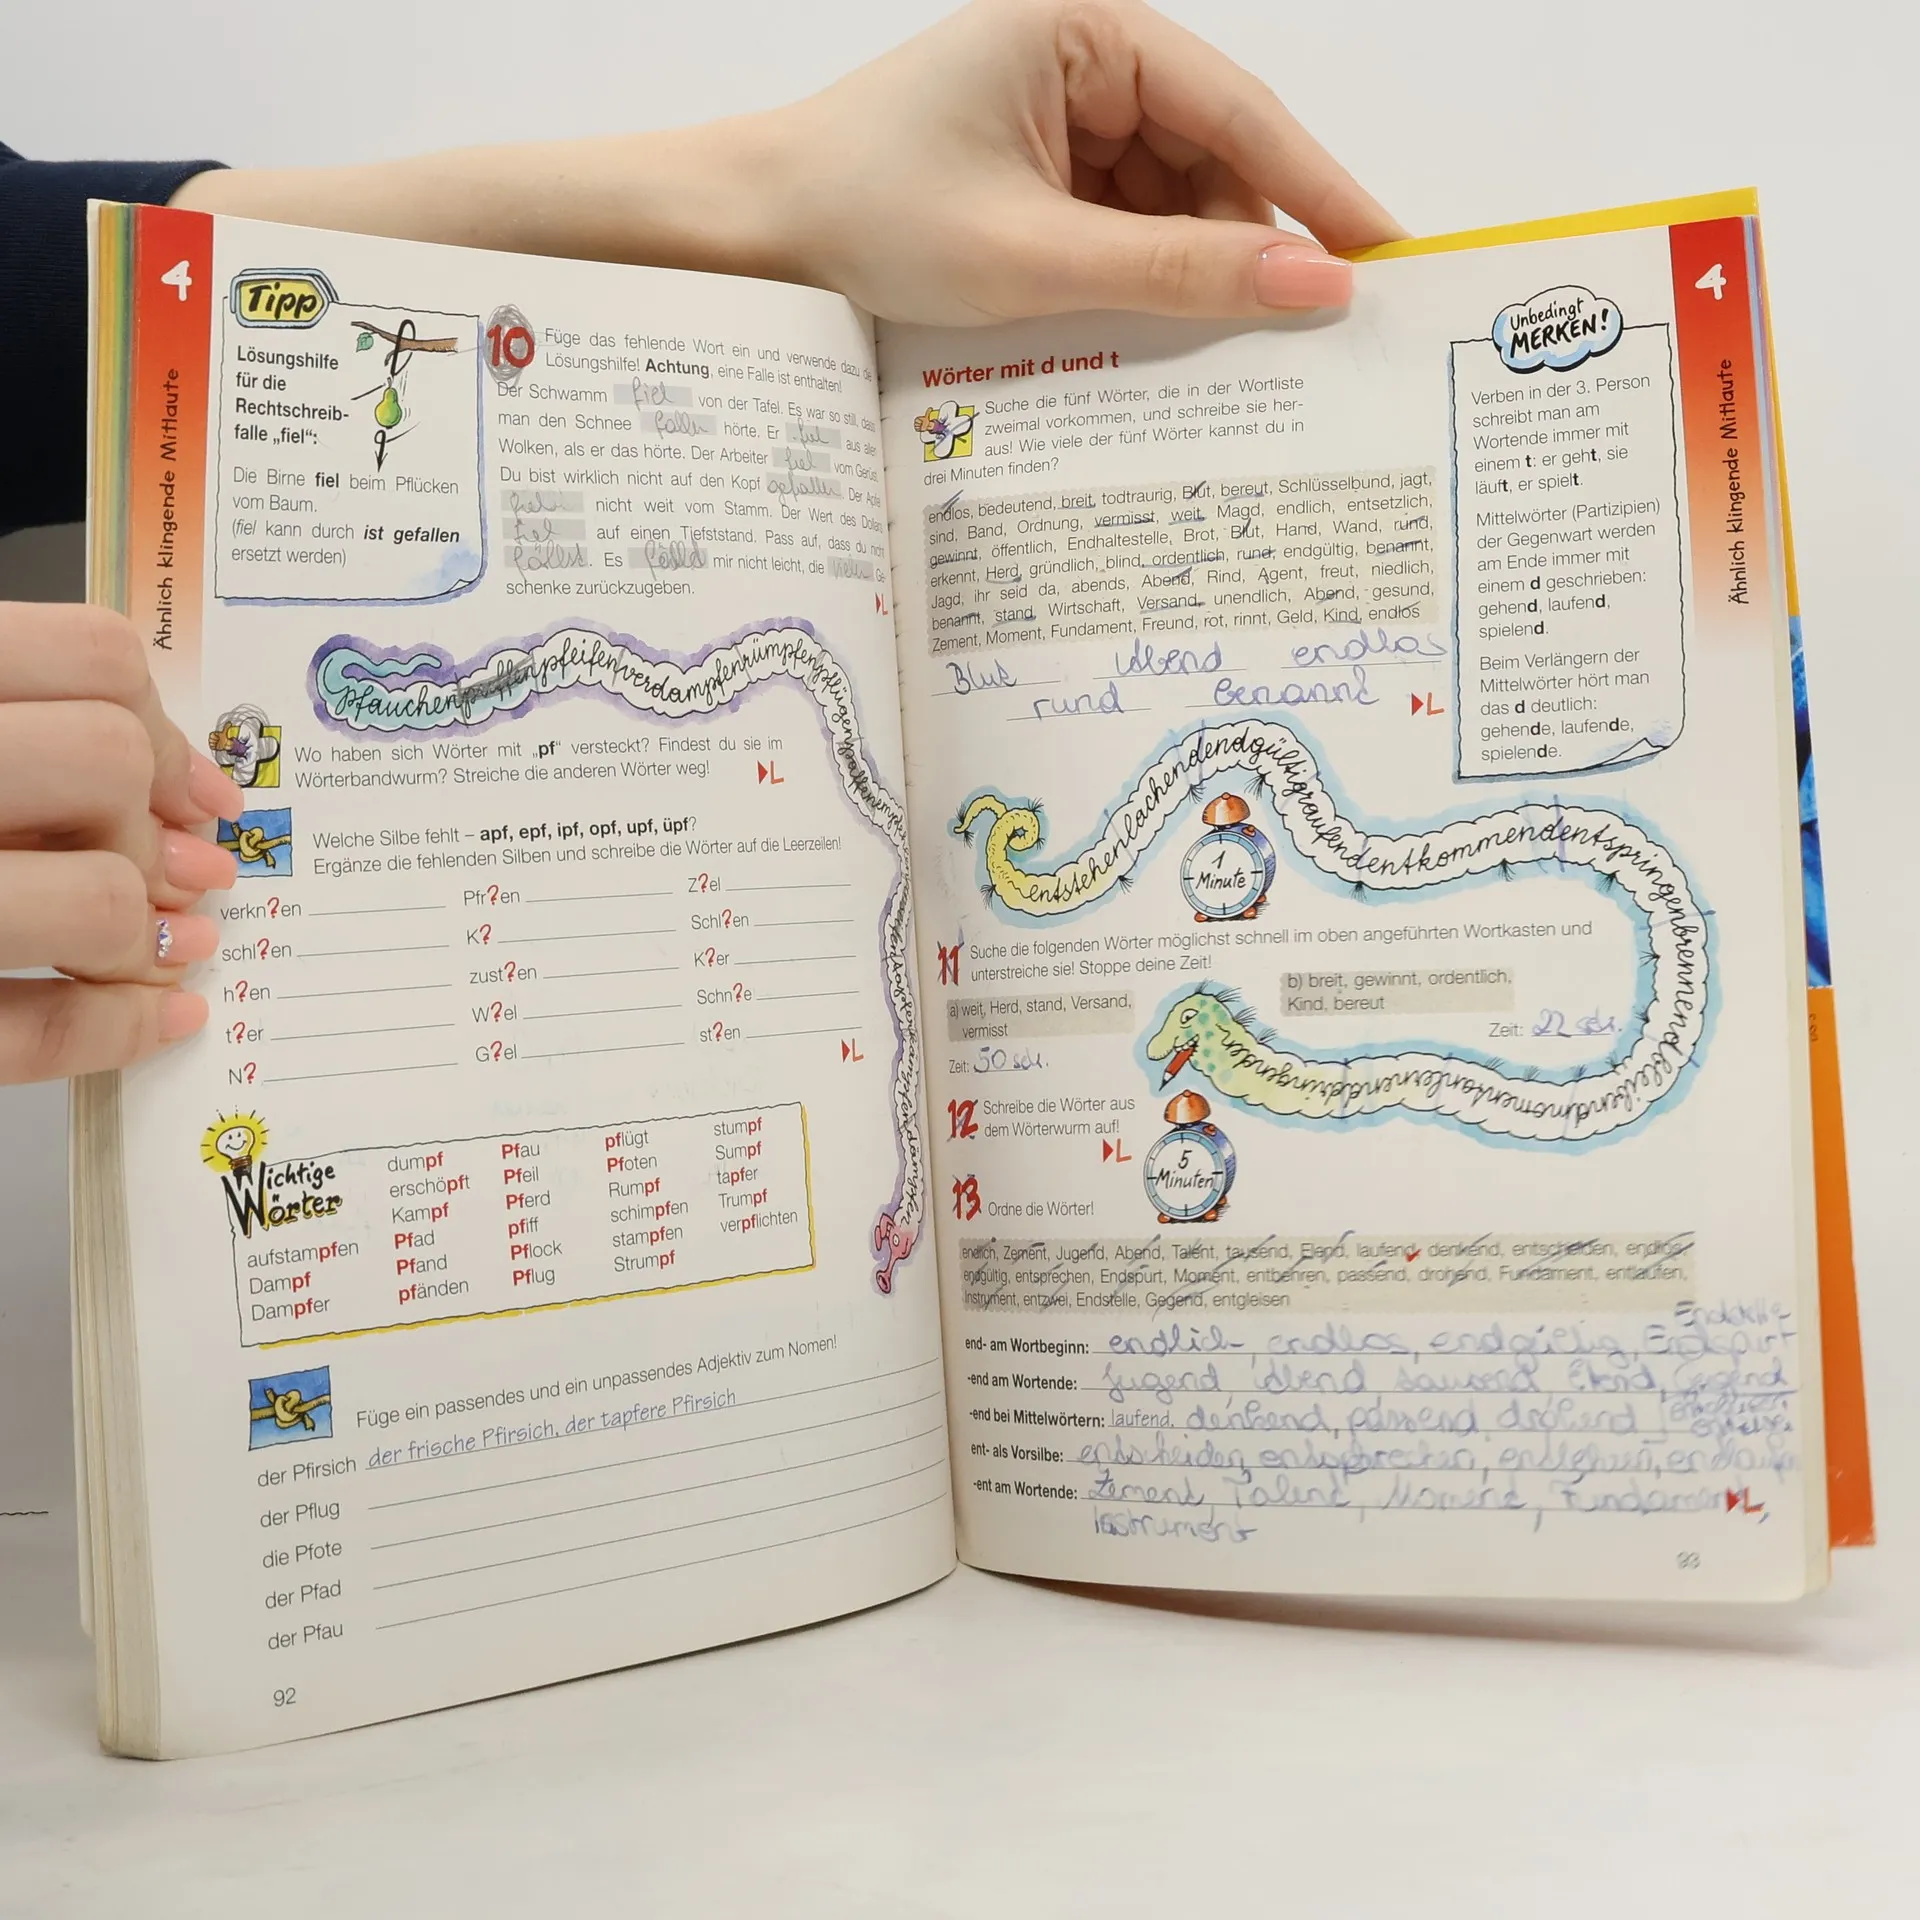 4
Ähnlich klingende Mitlaute
Tipp
Lösungshilfe
für die
Rechtschreib-
falle „fiel":
Die Birne fiel beim Pflücken
vom Baum.
(fiel kann durch ist gefallen
ersetzt werden)
10
Füge das fehlende Wort ein und verwende dazu die
Lösungshilfe! Achtung, eine Falle ist enthalten!
Der Schwamm fiel von der Tafel. Es war so still, dass
man den Schnee fallen hörte. Er fiel aus allen
Wolken, als er das hörte. Der Arbeiter fiel vom Gerüst.
Du bist wirklich nicht auf den Kopf gefallen. Der Apfel
nicht weit vom Stamm. Der Wert des Dollars
fiel auf einen Tiefststand. Pass auf, dass du nicht
fällst. Es fälld mir nicht leicht, die vielen Ge-
schenke zurückzugeben.
L
pfauchen pfeifenverdampfenrümpfenpflügen
Wo haben sich Wörter mit „pf" versteckt? Findest du sie im
Wörterbandwurm? Streiche die anderen Wörter weg!
L
Welche Silbe fehlt – apf, epf, ipf, opf, upf, üpf?
Ergänze die fehlenden Silben und schreibe die Wörter auf die Leerzeilen!
verkn?en Pfr?en Z?el
schl?en K? Schl?en
h?en zust?en K?er
t?er W?el Schn?e
N? G?el st?en
L
Wichtige
Wörter
aufstampfen
Dampf
Dampfer
dumpf
erschöpft
Kampf
Pfad
Pfand
pfänden
Pfau
Pfeil
Pferd
pfiff
Pflock
Pflug
pflügt
Pfoten
Rumpf
schimpfen
stampfen
Strumpf
stumpf
Sumpf
tapfer
Trumpf
verpflichten
Füge ein passendes und ein unpassendes Adjektiv zum Nomen!
der Pfirsich der frische Pfirsich, der tapfere Pfirsich
der Pflug
die Pfote
der Pfad
der Pfau
92
Wörter mit d und t
Suche die fünf Wörter, die in der Wortliste
zweimal vorkommen, und schreibe sie her-
aus! Wie viele der fünf Wörter kannst du in
drei Minuten finden?
endlos, bedeutend, breit, todtraurig, Blut, bereut, Schlüsselbund, jagt,
sind, Band, Ordnung, vermisst, weit, Magd, endlich, entsetzlich,
gewinnt, öffentlich, Endhaltestelle, Brot, Blut, Hand, Wand, rund,
erkennt, Herd, gründlich, blind, ordentlich, rund, endgültig, benannt,
Jagd, ihr seid da, abends, Abend, Rind, Agent, freut, niedlich,
benannt, stand, Wirtschaft, Versand, unendlich, Abend, gesund,
Zement, Moment, Fundament, Freund, rot, rinnt, Geld, Kind, endlos
Blut Abend endlos
rund benannt
L
4
Ähnlich klingende Mitlaute
Unbedingt
MERKEN!
Verben in der 3. Person
schreibt man am
Wortende immer mit
einem t: er geht, sie
läuft, er spielt.
Mittelwörter (Partizipien)
der Gegenwart werden
am Ende immer mit
einem d geschrieben:
gehend, laufend,
spielend.
Beim Verlängern der
Mittelwörter hört man
das d deutlich:
gehende, laufende,
spielende.
entstehenlachendendgültigraufendentkommendentspringenbrennendbleibendmomentanlernenddringenden
1
Minute
11
Suche die folgenden Wörter möglichst schnell im oben angeführten Wortkasten und
unterstreiche sie! Stoppe deine Zeit!
a) weit, Herd, stand, Versand,
vermisst
Zeit: 50 sek.
b) breit, gewinnt, ordentlich,
Kind, bereut
Zeit: 22 sek.
12
Schreibe die Wörter aus
dem Wörterwurm auf!
L
5
Minuten
13
Ordne die Wörter!
endlich, Zement, Jugend, Abend, Talent, tausend, Elend, laufend, denkend, entscheiden, endlos,
endgültig, entsprechen, Endspurt, Moment, entbehren, passend, drohend, Fundament, entlaufen,
Instrument, entzwei, Endstelle, Gegend, entgleisen
end- am Wortbeginn: endlich, endlos, endgültig, Endspurt
-end am Wortende: Jugend, Abend, tausend, Elend, Gegend
-end bei Mittelwörtern: laufend, denkend, passend, drohend
ent- als Vorsilbe: entscheiden, entsprechen,
-ent am Wortende: Zement, Talent, Moment, Fundament,
L
Instrument
93